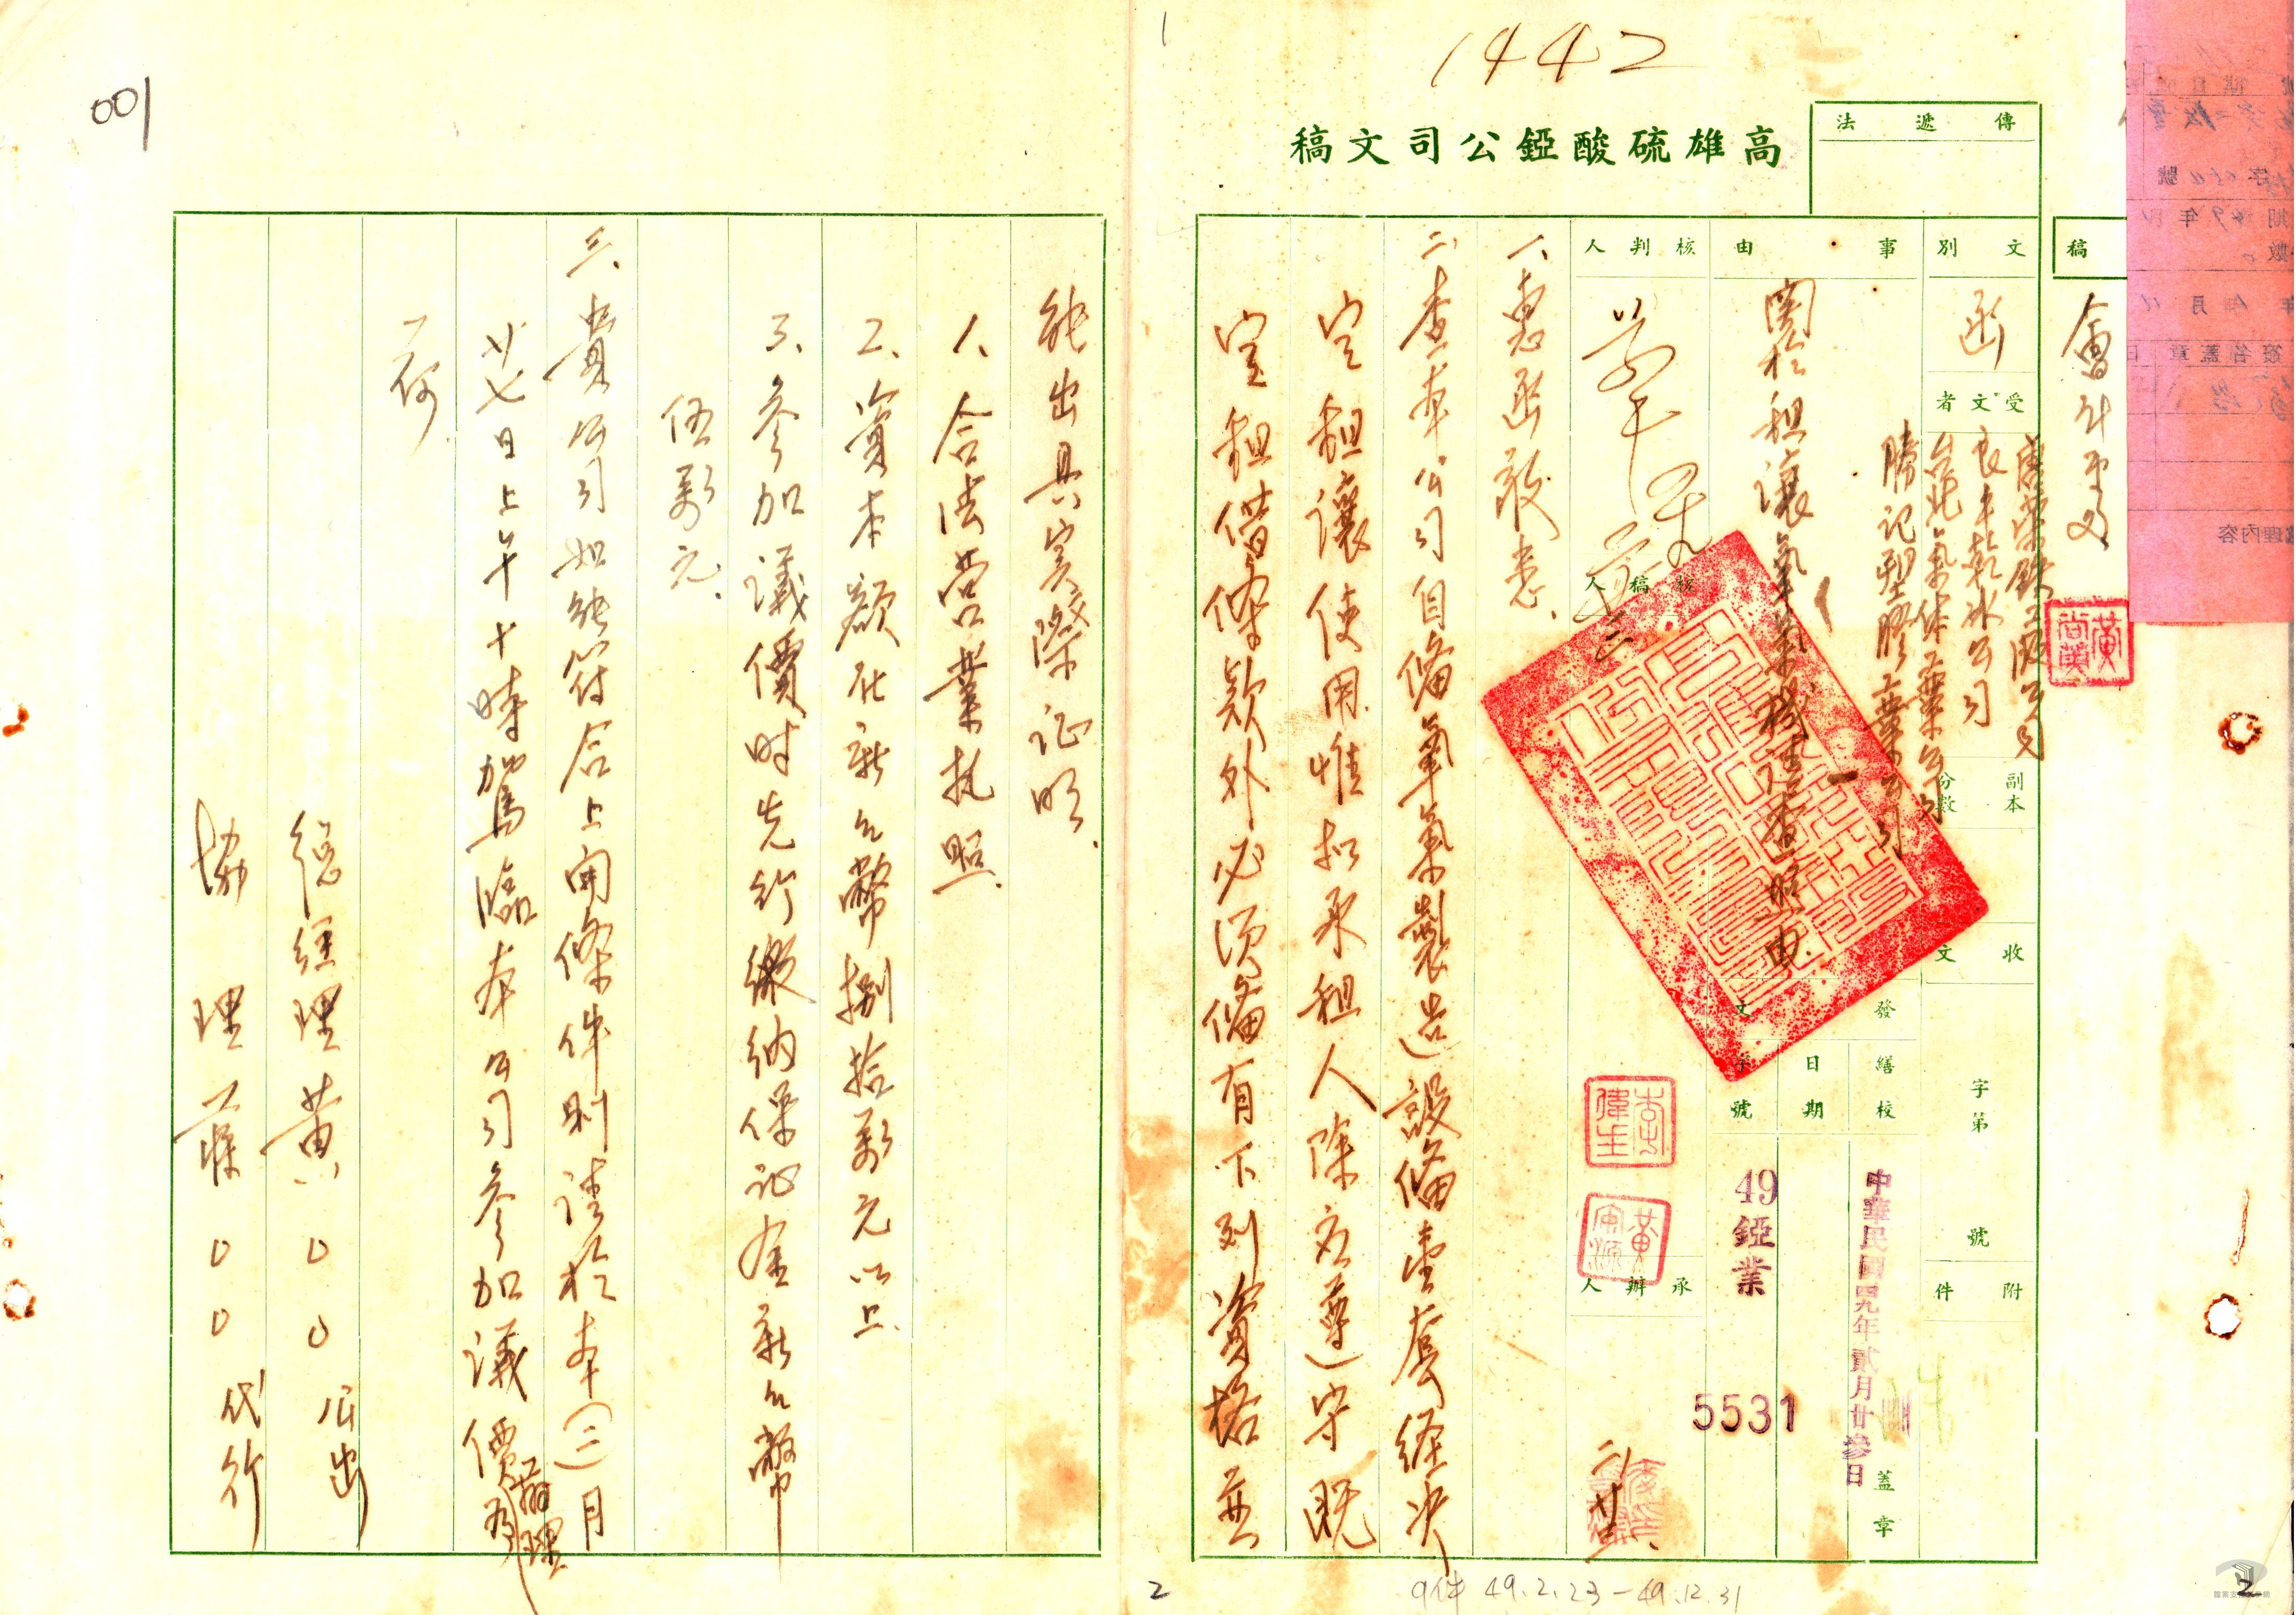 1442
001
1
高雄硫酸錏公司文稿
傳遞法
稿
會計處
文別
函
受文者
唐榮鐵工廠公司
良丰乾冰公司
台北氣体工業公司
勝記塑膠工業公司
副本
分數
收文
字第
號
附件
事由
關於租讓氧氣機請查照由
發文
繕校
日期
字號
蓋章
中華民國四九年貳月廿參日
49錏業
5531
核判人
核稿人
承辦人
一、惠函敬悉.
二、查本公司自備氧氣製造設備壹套經決
定租讓使用惟拟承租人除应遵守既
定租借條款外必須備有下列資格並
能出具實際证明.
1、合法营業执照.
2、資本額在新台幣捌拾萬元以上.
3、參加議價时先行繳納保证金新台幣
伍萬元.
三、貴公司如能符合上開條件則請於本(二)月
廿七日上午十時駕臨本公司參加議價
辦理
為
荷.
總經理黃○○公出
協理 ○○代行
2
9件 49.2.23－49.12.31
2